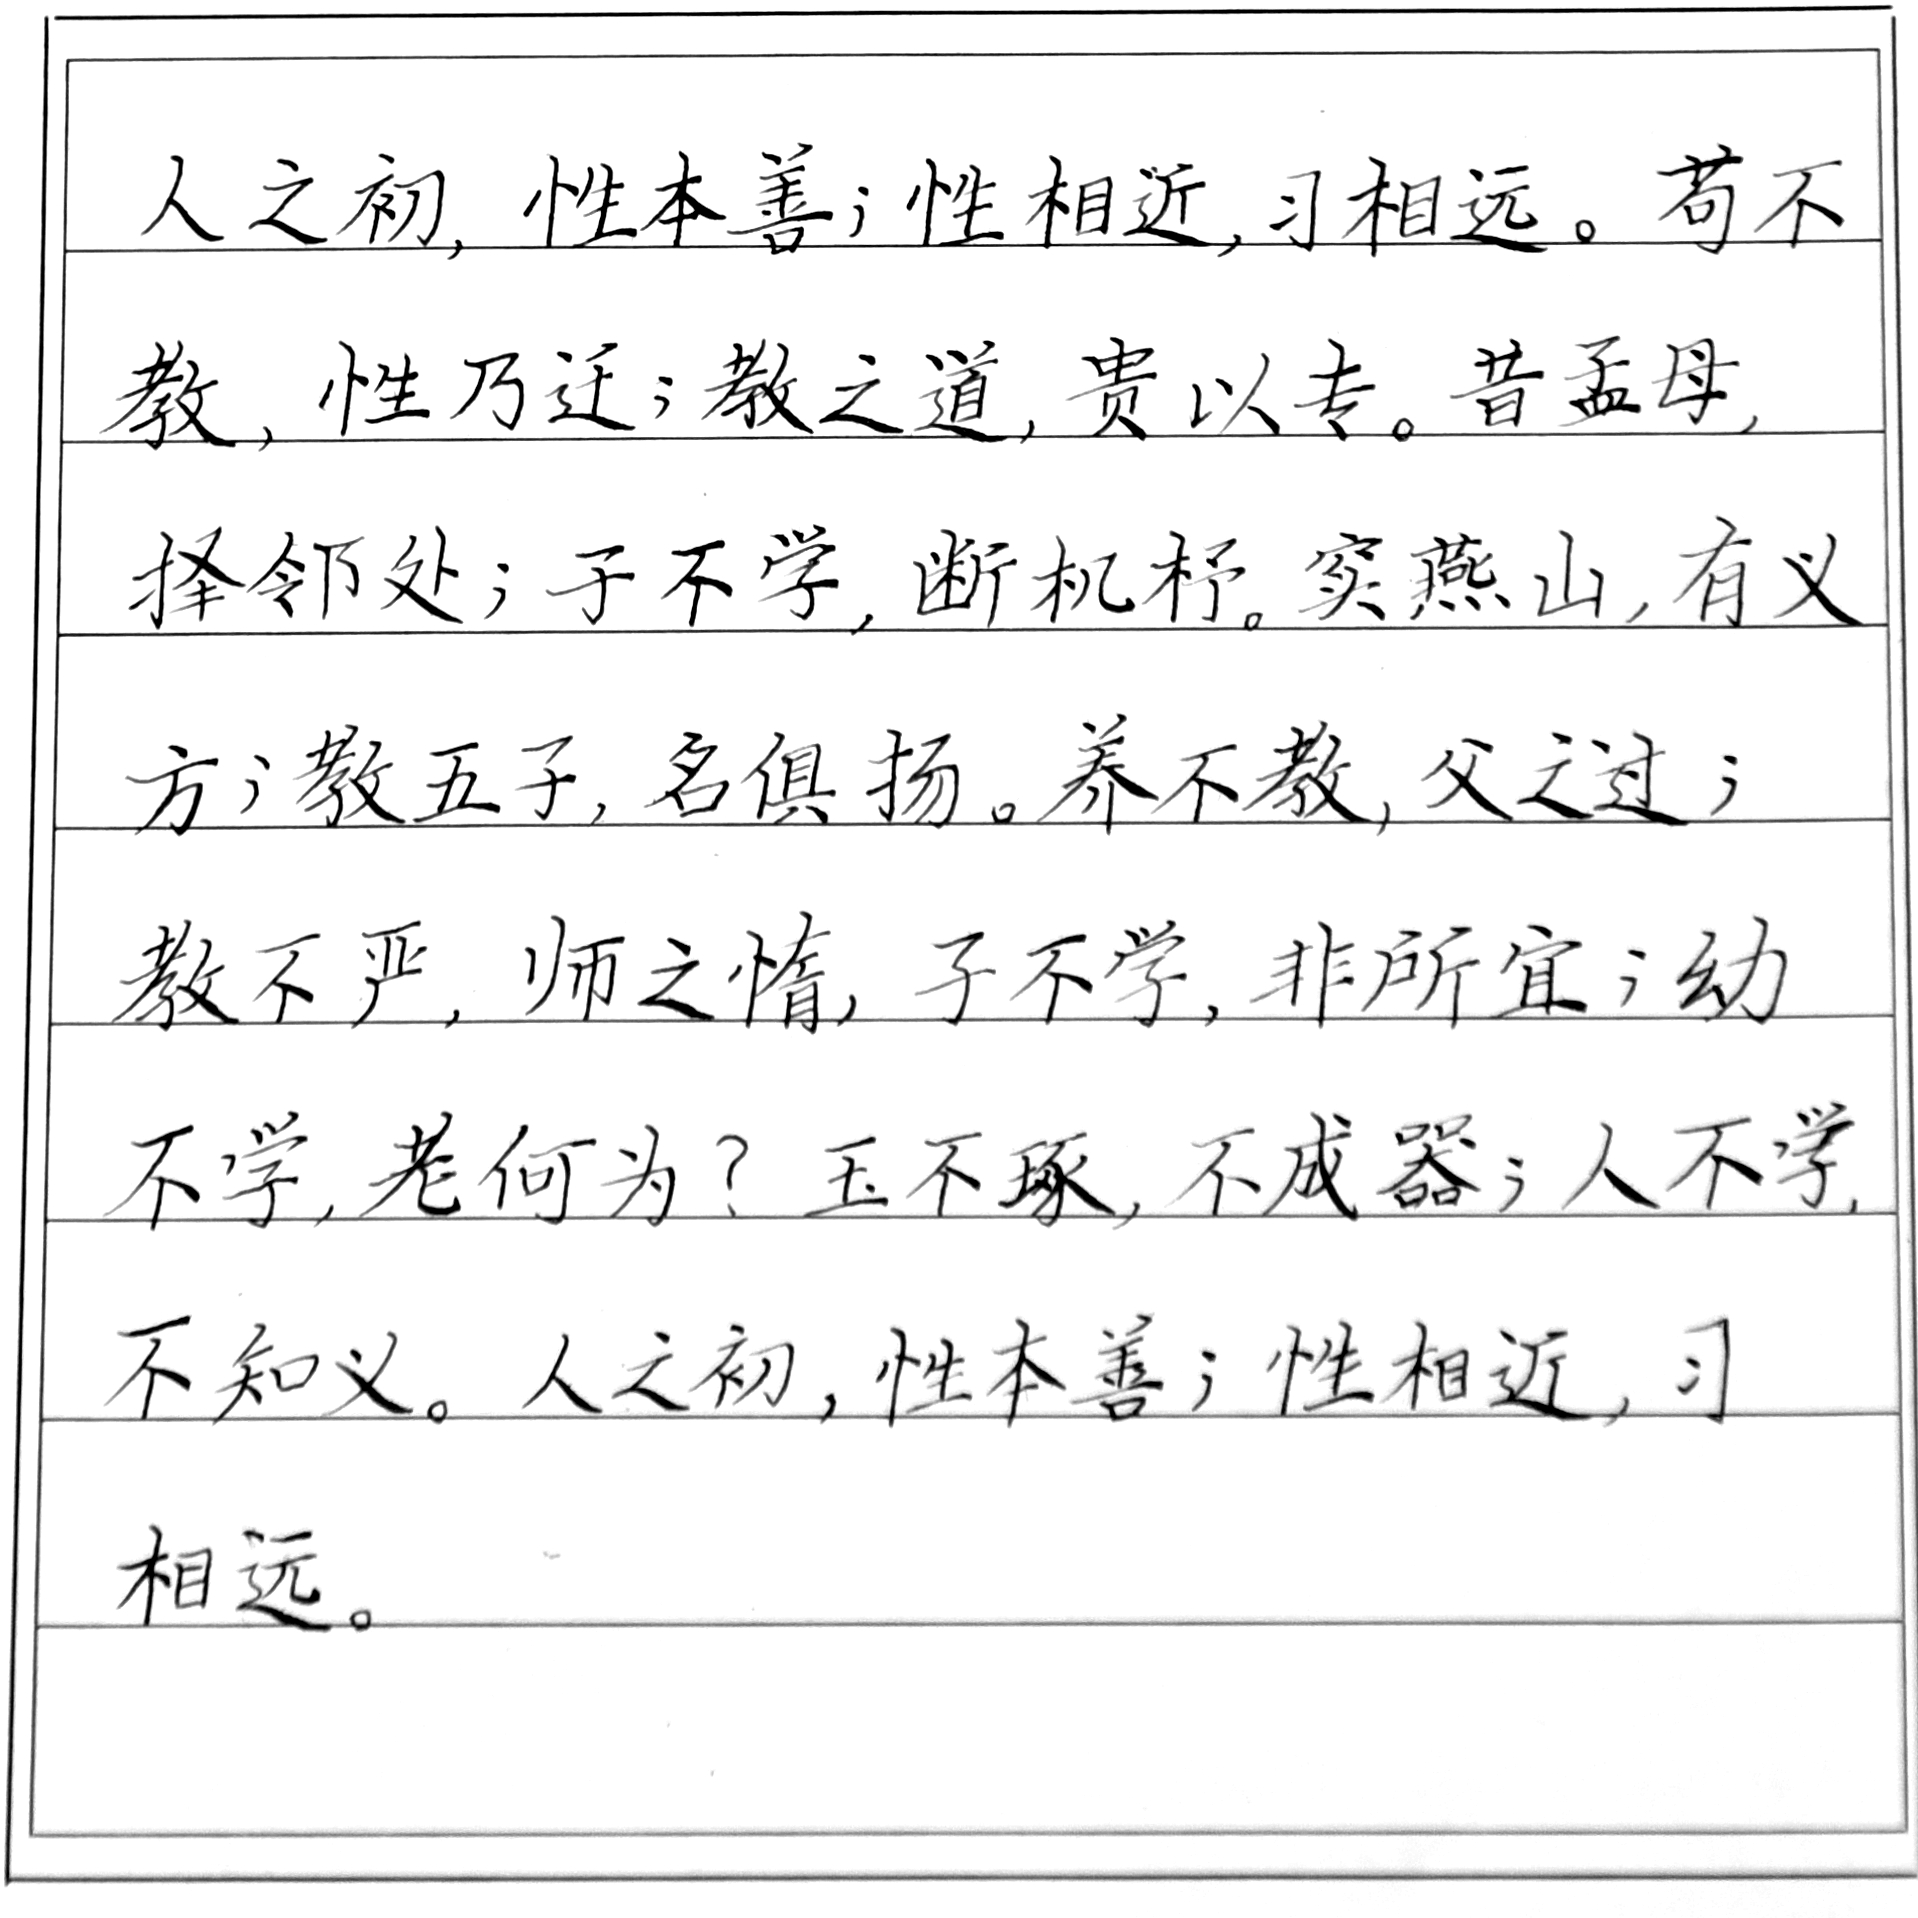 人之初,性本善;性相近,习相远。苟不
教,性乃迁;教之道,贵以专。昔孟母,
择邻处;子不学,断机杼。窦燕山,有义
方;教五子,名俱扬。养不教,父之过;
教不严,师之惰,子不学,非所宜;幼
不学,老何为?玉不琢,不成器;人不学,
不知义。人之初,性本善;性相近,习
相远。